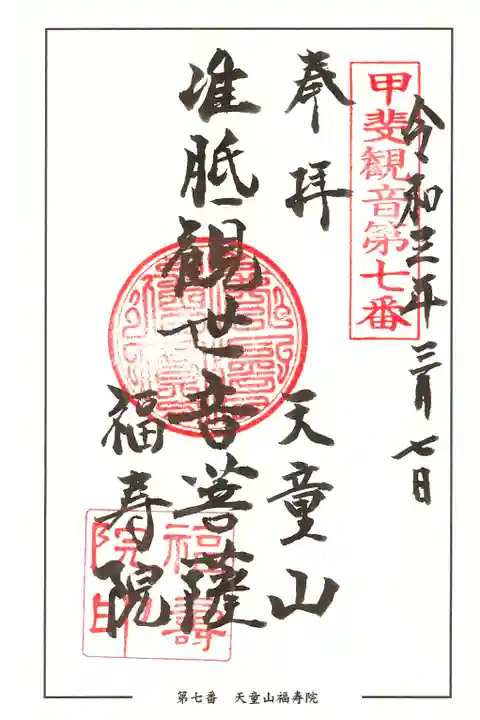 令和三年三月七日
甲斐観音第七番
奉拝 天童山
准胝観世音菩薩
福寿院
福寿院印
第七番 天童山福寿院